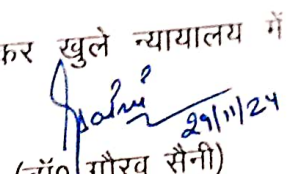 कर खुले न्यायालय में
29/11/24
(डॉ० गौरव सैनी)